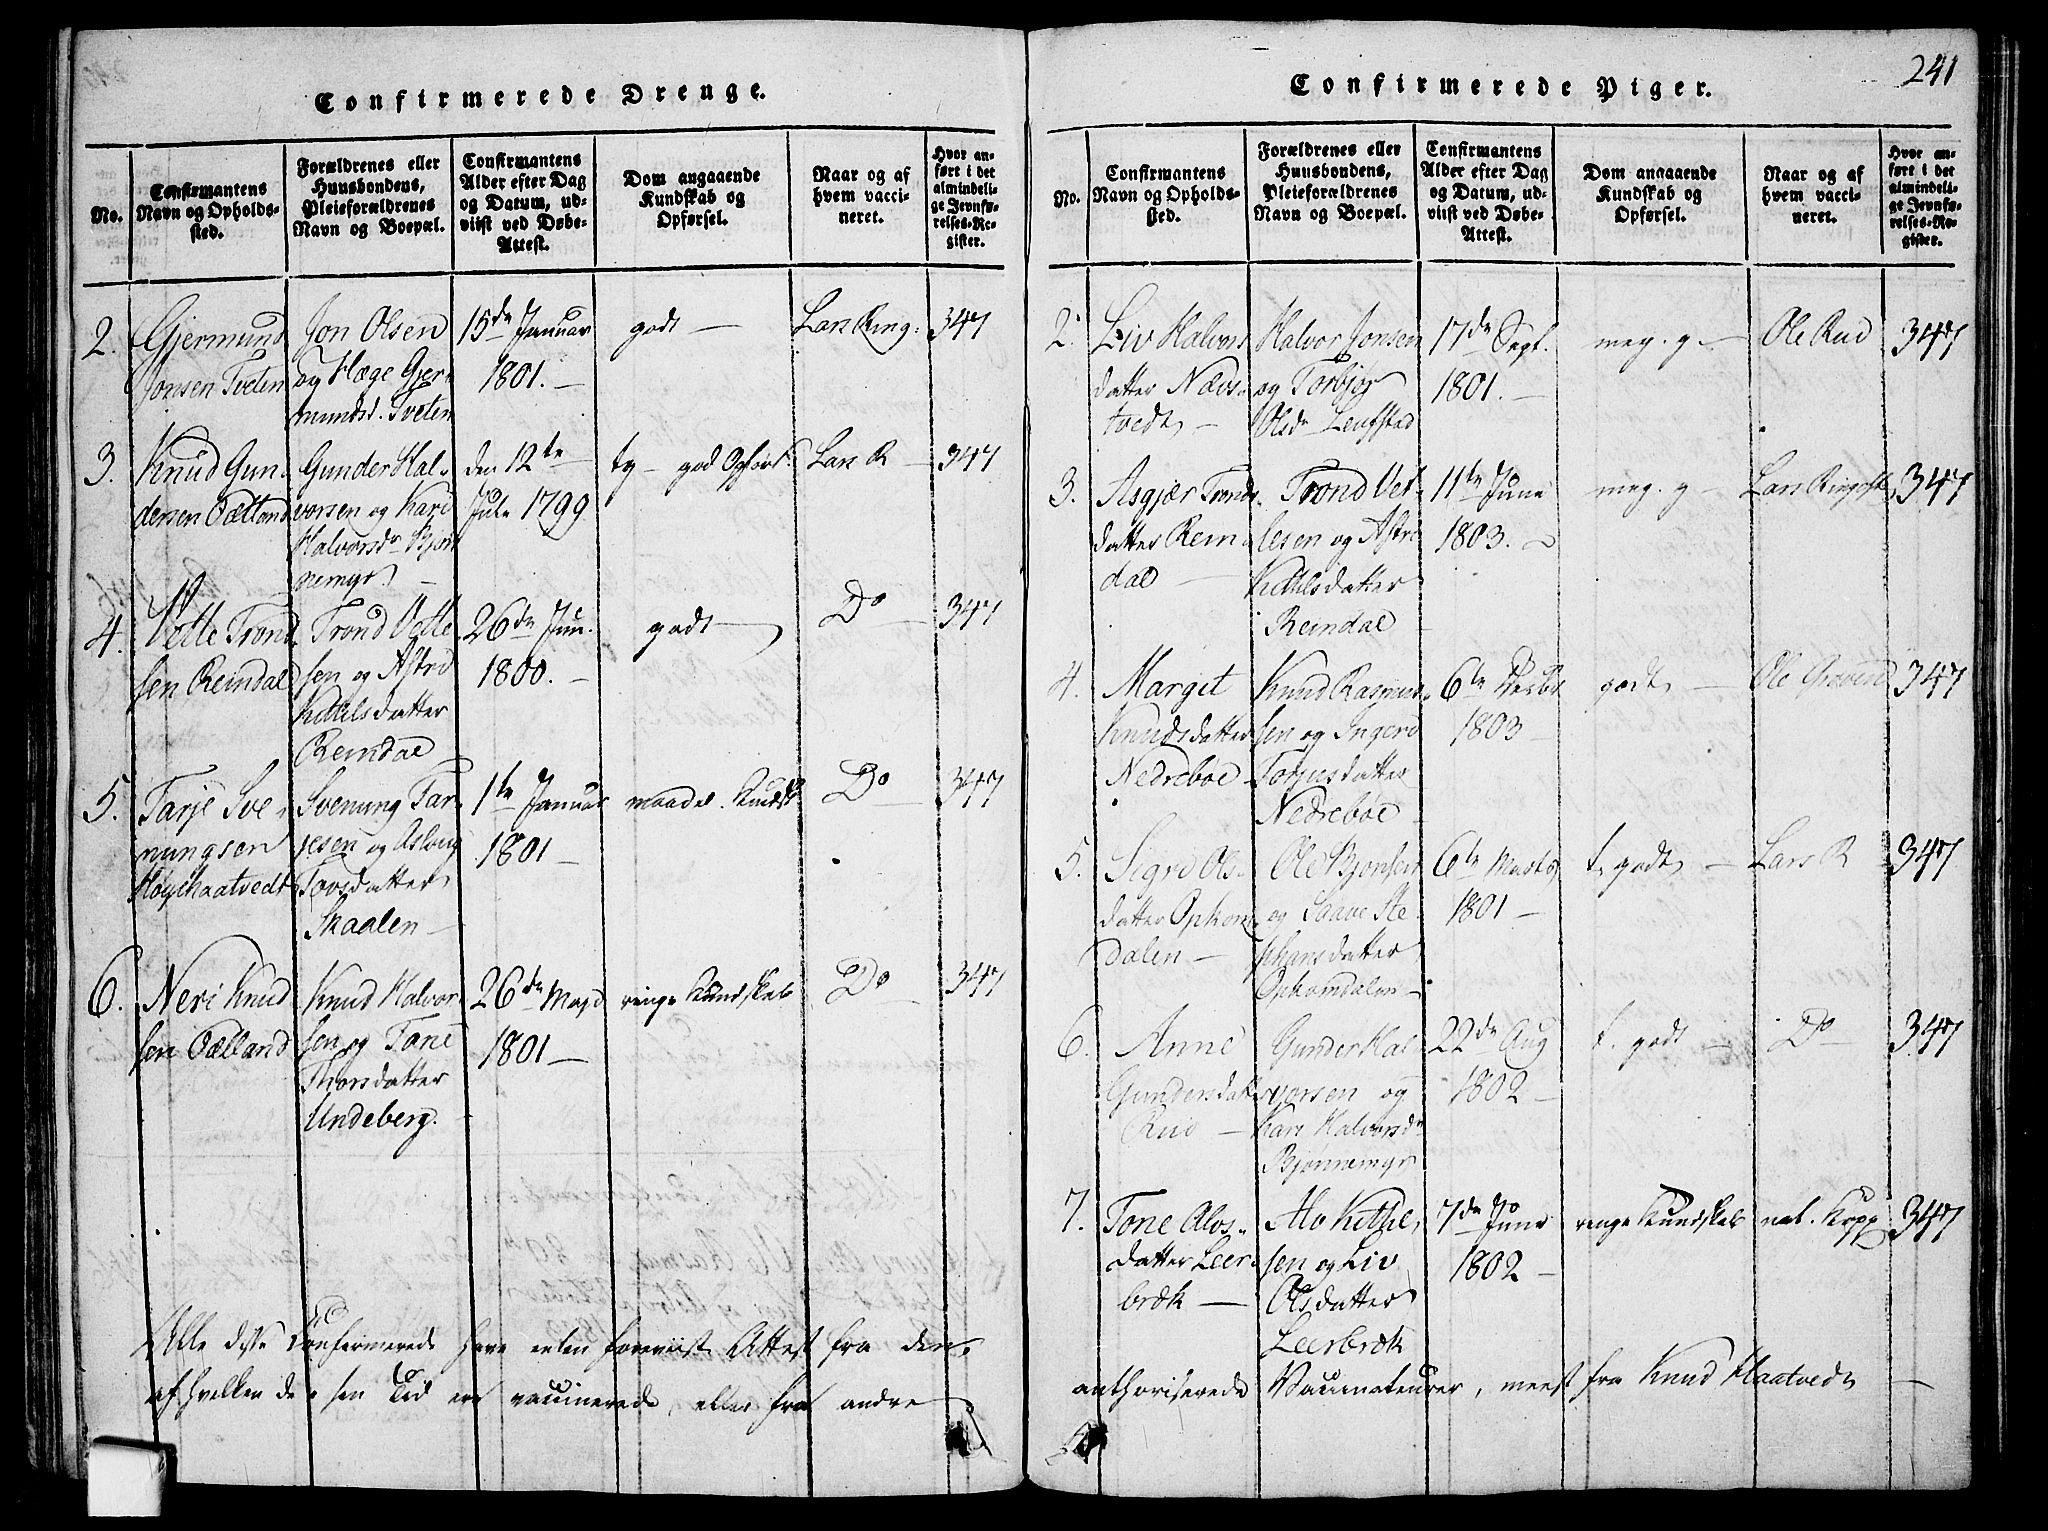 Confirmerede Drenge.
No.
Confirmantens
Navn og Opholds-
sted.
Forældrenes eller
Huusbondens,
Pleieforældrenes
Navn og Boepæl.
Confirmantens
Alder efter Dag
og Datum, ud-
viist ved Døbe-
Attest.
Dom angaaende
Kundskab og
Opførsel.
Naar og af
hvem vacci-
neret.
Hvor an-
ført i det
almindeli-
ge Jevnfø-
relses-Re-
gister.
2.
Gjermund
Jonsen Tveten
Jon Olsen
og Hæge Gjer-
mundsd. Tveten
15de Januar
1801. —
godt —
Lars Ring:
347
3.
Knud Gun-
dersen Oatland
Gunder Hal-
vorsen og Kari
Halvorsdr Bjøn
nemyr. —
den 12te
Jule 1799
tg — god Opførs.
Lars R —
347
4.
Vetle Trond
sen Reindal
Trond Vetle
sen og Astrid
Kittilsdatter
Reindal
26de Jun.
1800. —
godt —
Do
347
5.
Tarje Sve-
nungsen
Høgehaatvedt
Svenung Tar-
jesen og Asloug
Tovsdatter
Skaalen —
1te Januar
1801 —
maadel. Kundsk
Do
347
6.
Neri Knud
sen Oælland
Knud Halvor
sen og Tone
Thorsdatter
Undeberg. —
26de Mayd
1801 —
ringe Kundskab
Do
347
Alle disse Confirmerede have enten foreviist Attest fra den
af hvilken de i sin Tid ere vaccinerede, eller fra andre
241
Confirmerede Piger.
No.
Confirmantens
Navn og Opholds-
sted.
Forældrenes eller
Huusbondens,
Pleieforældrenes
Navn og Boepæl.
Confirmantens
Alder efter Dag
og Datum, ud-
viist ved Døbe-
Attest.
Dom angaaende
Kundskab og
Opførsel.
Naar og af
hvem vacci-
neret.
Hvor an-
ført i det
almindeli-
ge Jevnfø-
relses-Re-
gister.
2.
Liv Halvors
datter Nævs-
tvedt —
Halvor Jonsen
og Torbjør
Olsdr Leufstad
17de Sept.
1801. —
meg. g —
Ole Rud
347
3.
Asgjær Tronds-
datter Rein-
dal —
Trond Vet-
lesen og Astri
Kittilsdatter
Reindal
11te June
1803. —
meg. g —
Lars Ringsk
347
4.
Marget
Knudsdatter
Nedrebøe
Knud Rasmus-
sen og Ingerd
Torjusdatter
Nedrebøe
6te Decbr
1803 —
godt —
Ole Graven
347
5.
Sigrd Ols-
datter Opkom-
dalen —
Ole Bjonsen
og Saave Ste-
phansdatter
Opkomdalen —
6te Marts
1801 —
t. godt —
Lars R
347
6.
Anne
Gundersdatt
Rud —
Gunder Hal
vorsen og
Kari Halvorsdr
Bjønnemyr
22de Aug
1802 —
t. godt —
Do
347
7.
Tone Alvs-
datter Leer-
bræk —
Alv Kittel
sen og Liv
Olsdatter
Leerbræk
7de June
1802 —
ringe Kundskab
nat. Kopp
347
anthoriserede Vaccinateurer, meest fra Knud Haatvedt —